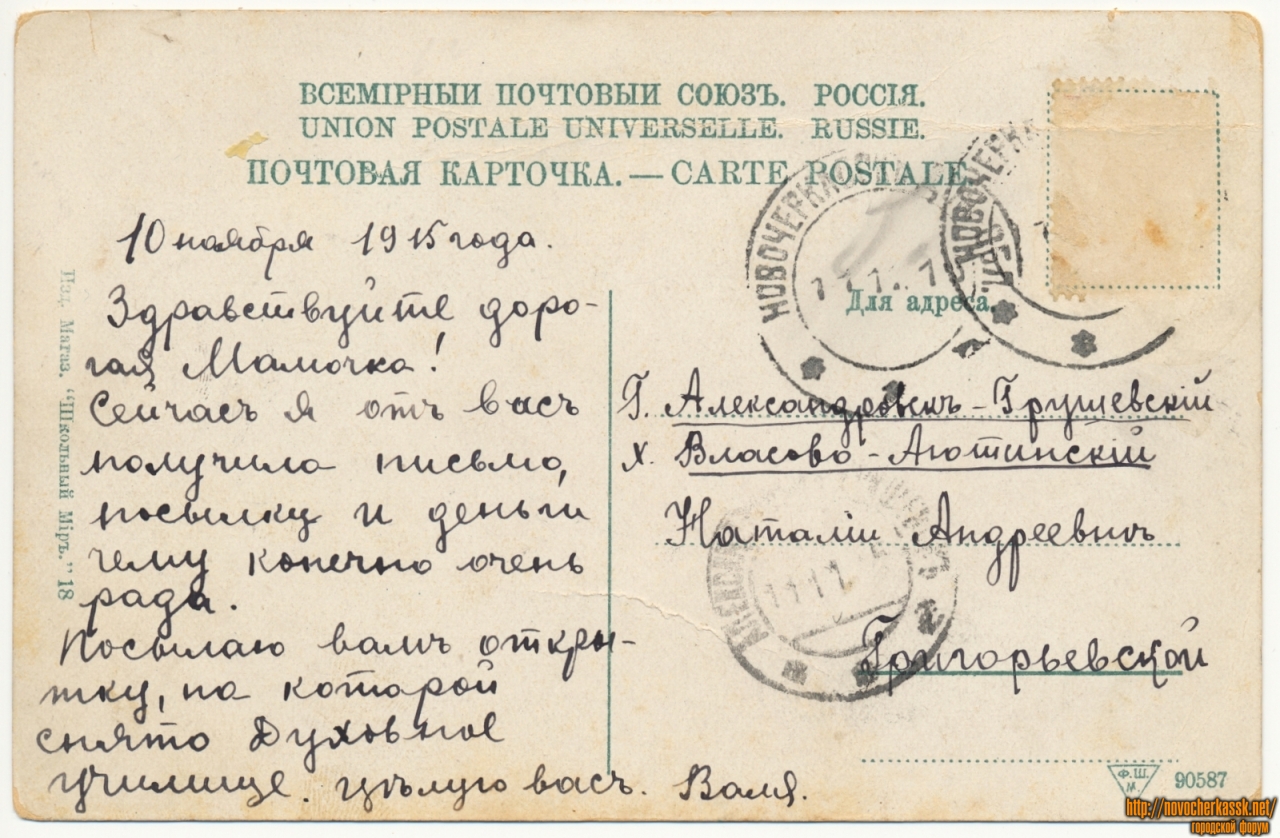 ВСЕМІРНЫЙ ПОЧТОВЫЙ СОЮЗЪ. РОССІЯ.
UNION POSTALE UNIVERSELLE. RUSSIE.
ПОЧТОВАЯ КАРТОЧКА. — CARTE POSTALE.
10 ноября 1915 года.
Здравствуйте доро-
гая Мамочка!
Сейчасъ я отъ васъ
получила письмо,
посылку и деньги
чему конечно очень
рада.
Посылаю вамъ откры-
тку, на которой
снято Духовное
училище. Цѣлую васъ. Валя.
Изд. Магаз. "Школьный Міръ." 18
НОВОЧЕРКАССК
НОВОЧЕРКА
Для адреса.
Г. Александровскъ-Грушевскій
х. Власово-Аютинскій
Наталіи Андреевнѣ
Григорьевской
Ф.Ш.
М.
90587
http://novocherkassk.net/
городской форум